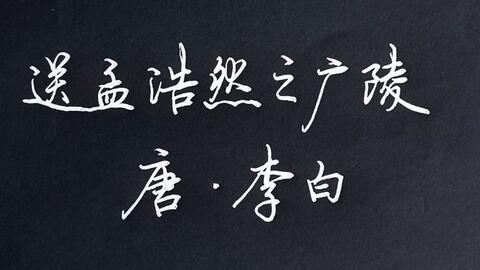 送孟浩然之广陵
唐·李白